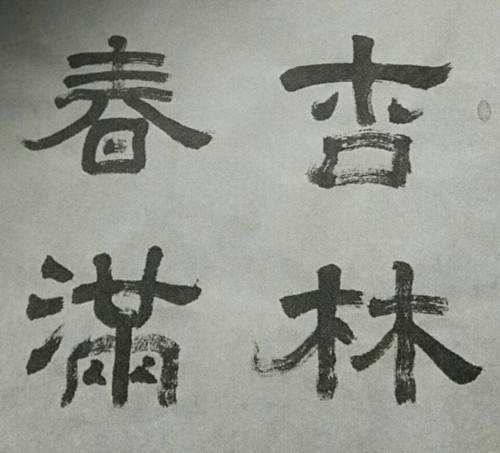 杏林
春滿